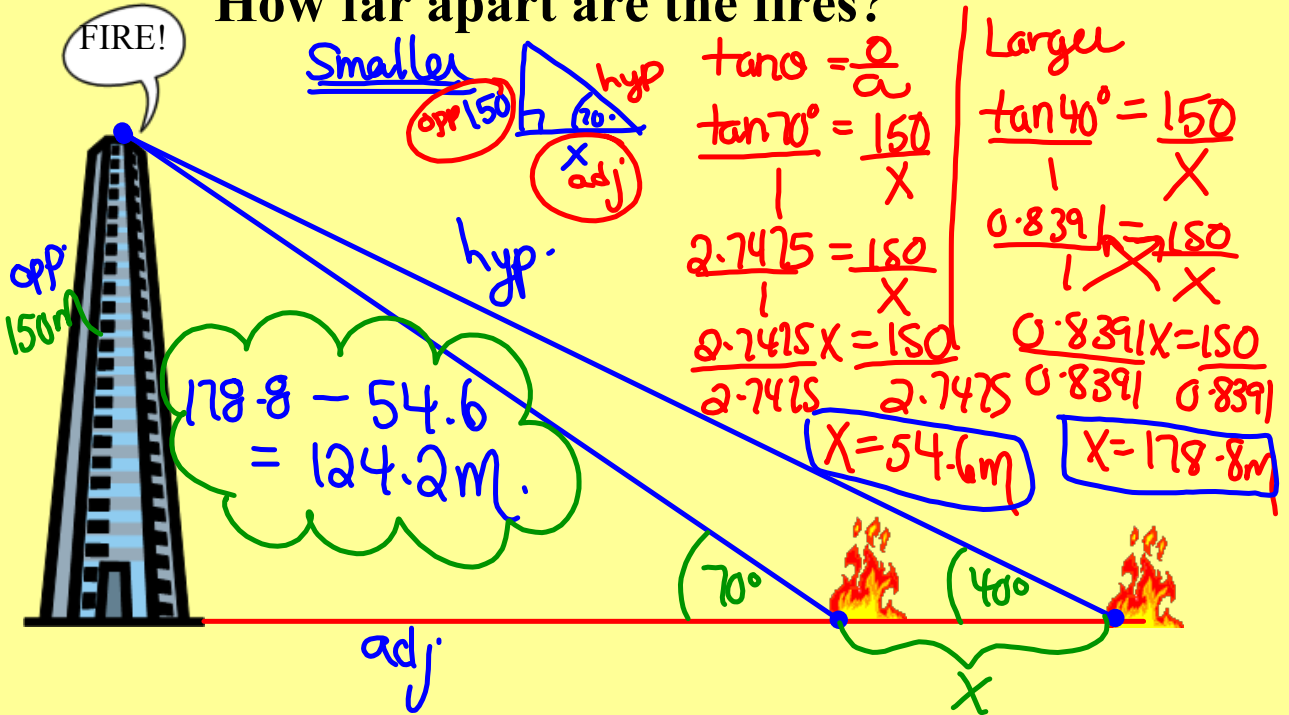 How far apart are the fires?
FIRE!
Smaller
opp 150
hyp
70°
x
adj
tanθ = o/a
tan70° = 150
1 X
2.7475 = 150
1 X
2.7475x = 150
2.7475 2.7475
X=54.6m
Larger
tan40° = 150
1 X
0.8391 = 150
1 X
0.8391x = 150
0.8391 0.8391
X=178.8m
hyp.
opp.
150m
178.8 - 54.6
= 124.2m.
70°
40°
adj
X